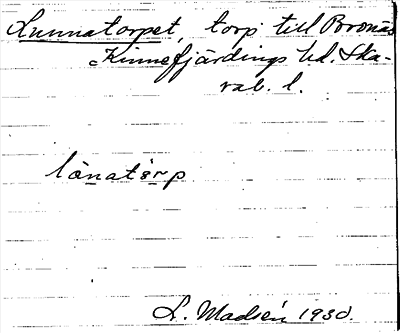 Lunnatorpet, torp till Bronäs
Kinnefjärdings hd. Ska-
rab. l.
lånatårp
L. Madsén 1930.